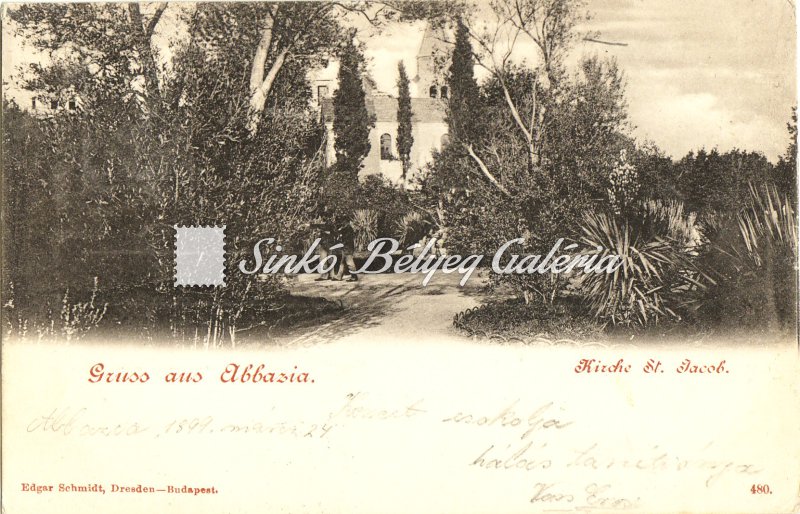 Sinkó Bélyeg Galéria
Gruss aus Abbazia.
Kirche St. Jacob.
Abbazia 1899. márci 24
csokolja
hálás tanítványa
Vass
Edgar Schmidt, Dresden—Budapest.
480.